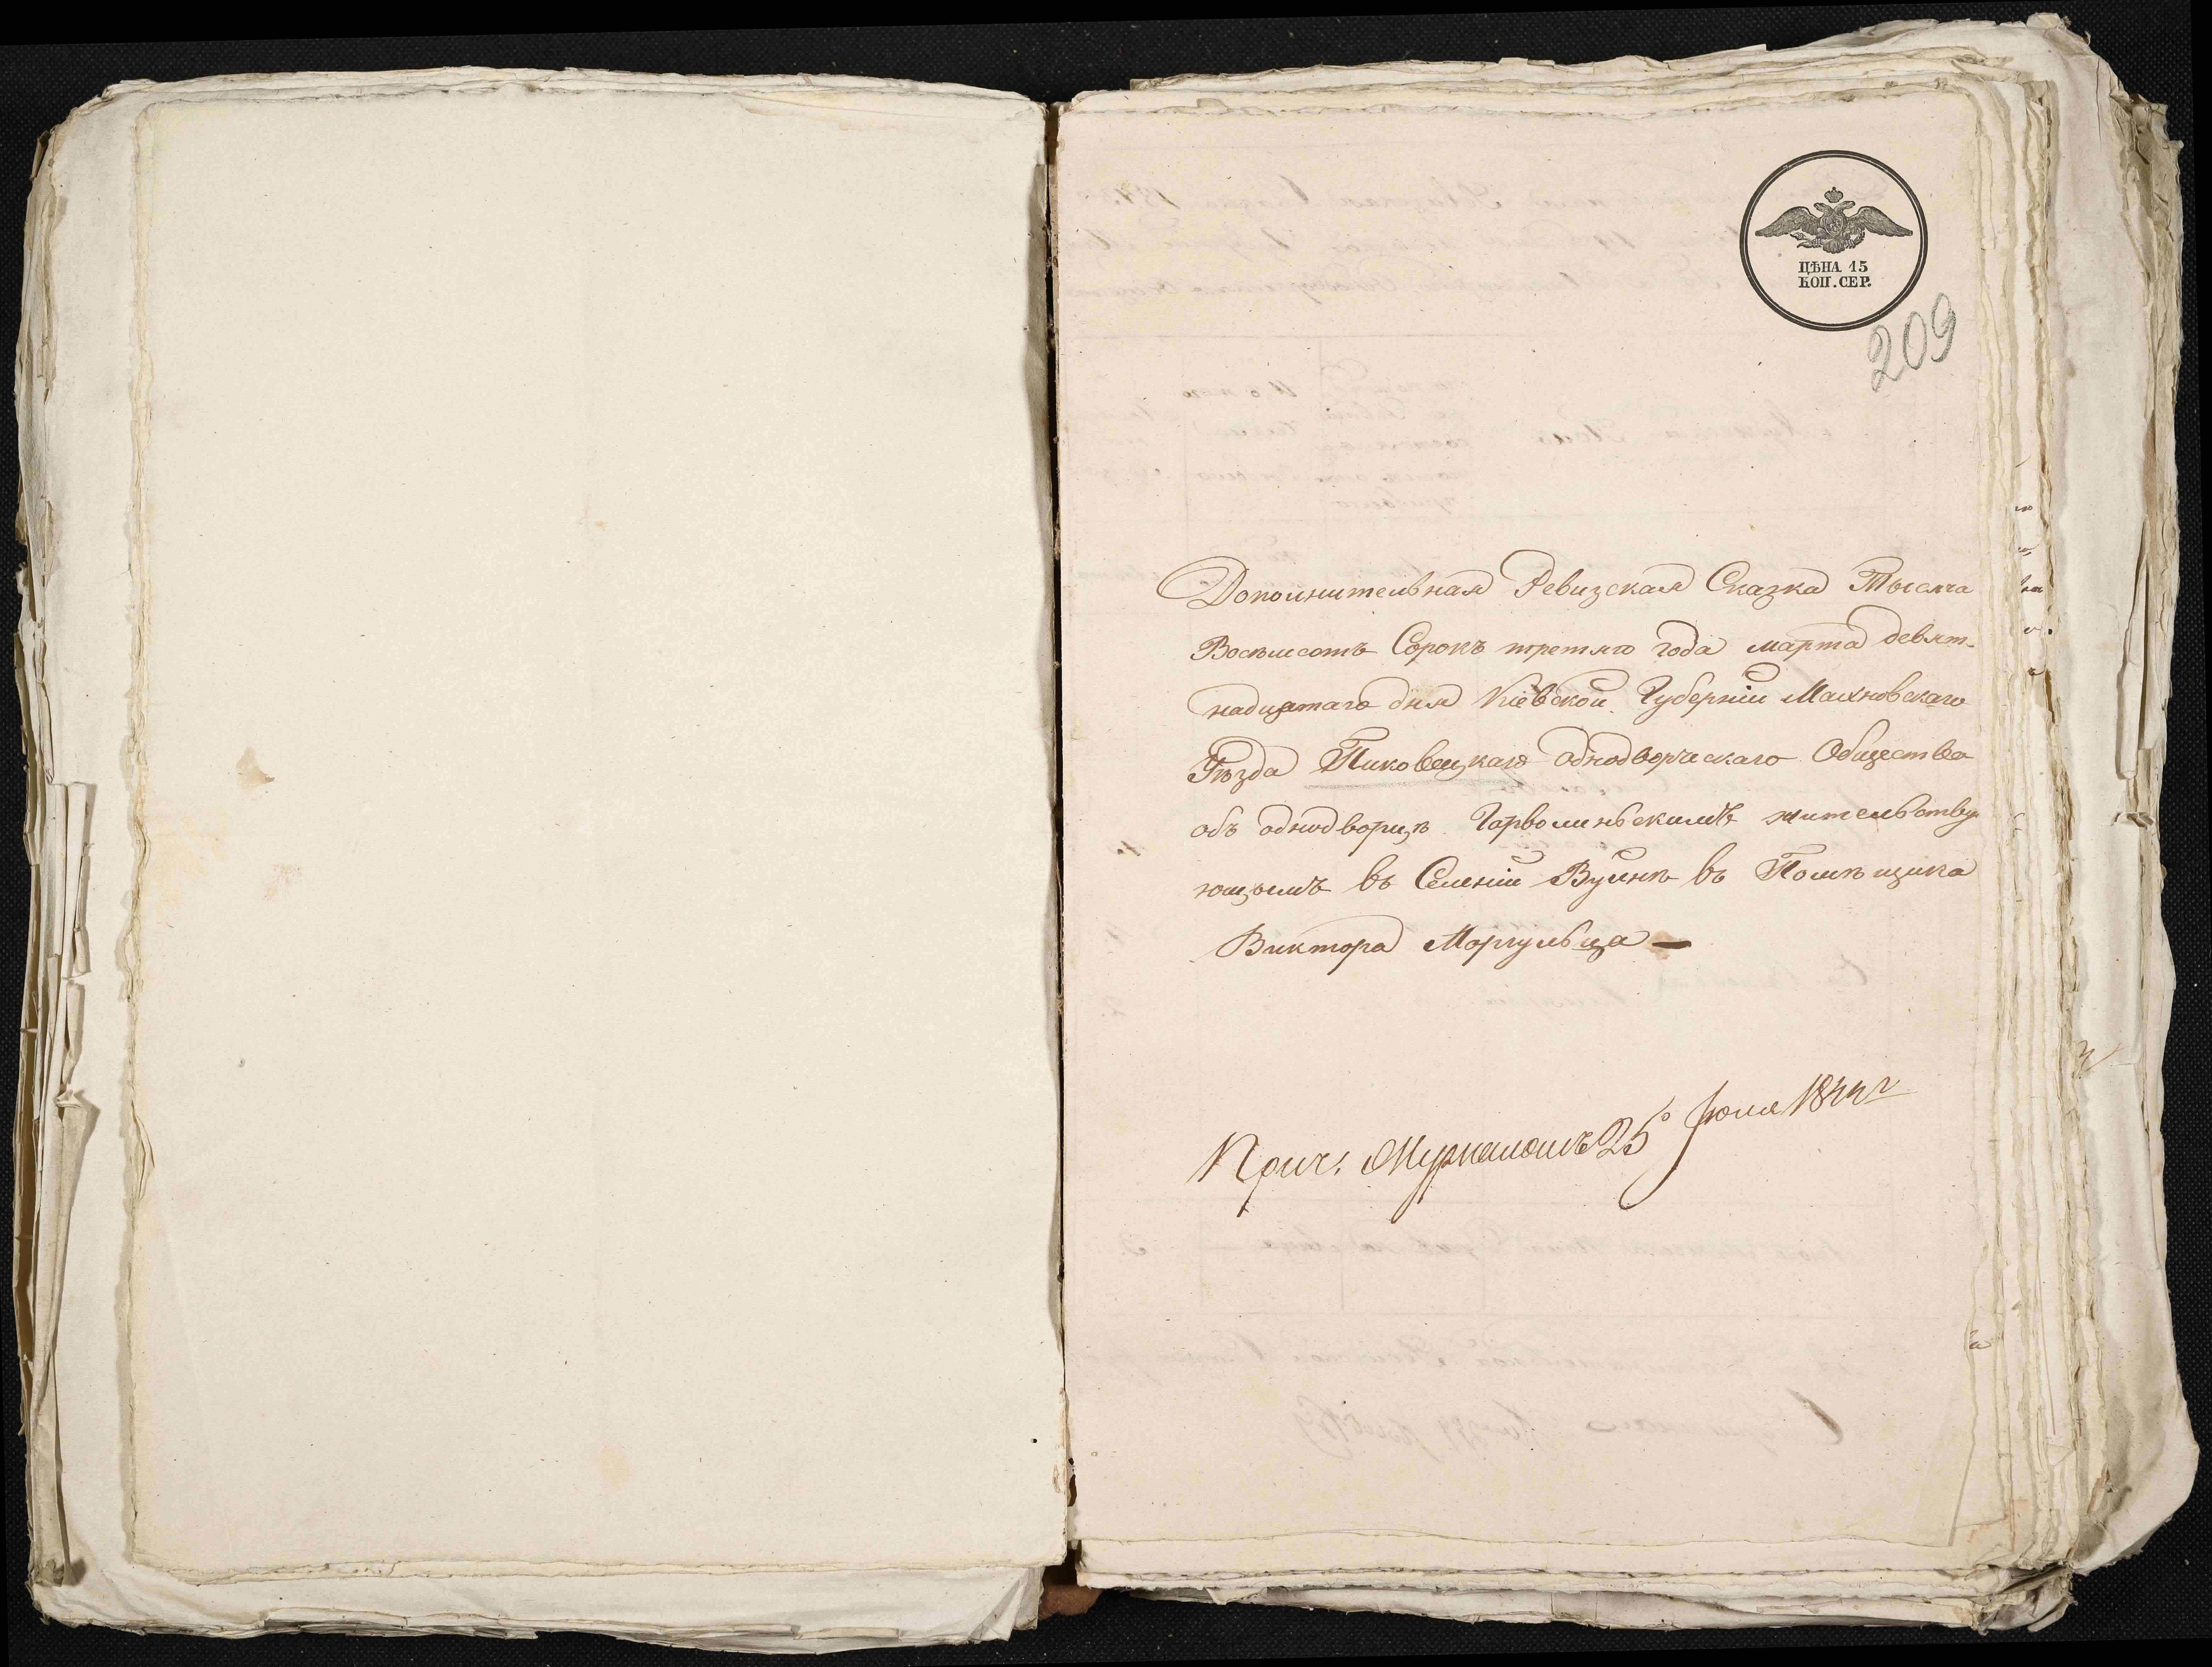 ЦѢНА 15
КОП. СЕР.
209
Дополнительная Ревизская Сказка Тысяча
Восьмсотъ Сорокъ третяго года марта девят-
надцатаго дня Кіевской Губерніи Махновскаго
Уѣзда Пиковецкаго однодворческаго Общества
объ однодворцѣ Гарволинскимъ жительству
ющемъ въ Селеніи Вуйнѣ въ Помѣщика
Виктора
25 Іюля 1844 г